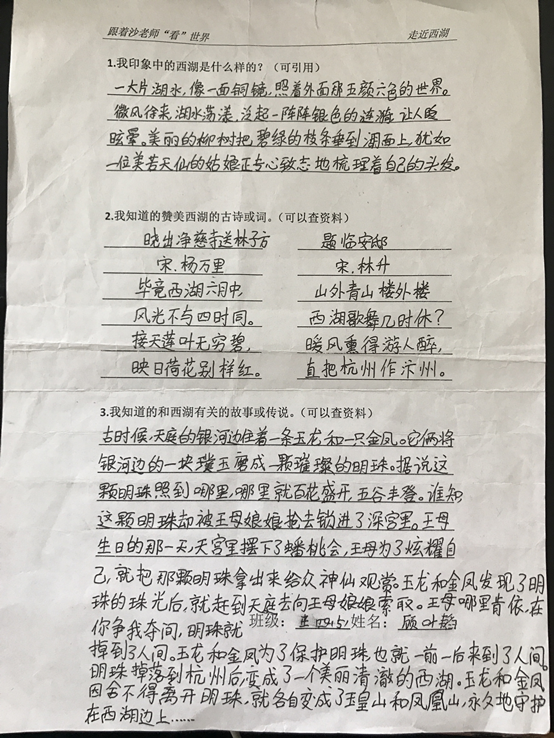 跟着沙老师“看”世界 走近西湖
1.我印象中的西湖是什么样的？（可引用）
一大片湖水,像一面铜镜,照着外面那五颜六色的世界。
微风徐来,湖水荡漾,泛起一阵阵银色的涟漪,让人
眩晕。美丽的柳树把碧绿的枝条垂到湖面上,犹如
一位美若天仙的姑娘正专心致志地梳理着自己的头发。
2.我知道的赞美西湖的古诗或词。（可以查资料）
晓出净慈寺送林子方 题临安邸
宋.杨万里 宋.林升
毕竟西湖六月中, 山外青山楼外楼
风光不与四时同。 西湖歌舞几时休?
接天莲叶无穷碧, 暖风熏得游人醉,
映日荷花别样红。 直把杭州作汴州。
3.我知道的和西湖有关的故事或传说。（可以查资料）
古时候,天庭的银河边住着一条玉龙和一只金凤。它俩将
银河边的一块璞玉磨成一颗璀璨的明珠。据说这
颗明珠照到哪里,哪里就百花盛开,五谷丰登。谁知
这颗明珠却被王母娘娘抢去锁进了深宫里。王母
生日的那一天,天宫里摆下了蟠桃会,王母为了炫耀自
己,就把那颗明珠拿出来给众神仙观赏。玉龙和金凤发现了明
珠的珠光后,就赶到天庭去向王母娘娘索取。王母哪里肯依,在
你争我夺间,明珠就 班级： 姓名：
掉到了人间。玉龙和金凤为了保护明珠也就一前一后来到了人间。
明珠掉落到杭州后,变成了一个美丽清澈的西湖。玉龙和金凤
因舍不得离开明珠,就各自变成了玉皇山和凤凰山,永久地守护
在西湖边上……